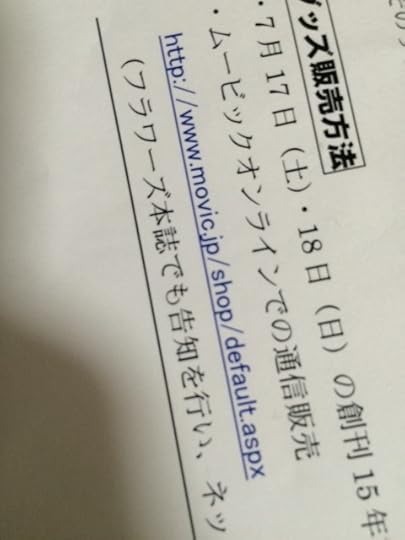 グッズ販売方法
・7月17日（土）・18日（日）の創刊15年
・ムービックオンラインでの通信販売
http://www.movic.jp/shop/default.aspx
（フラワーズ本誌でも告知を行い、ネッ